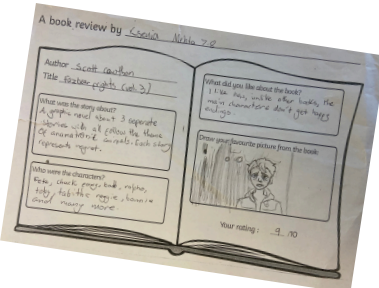 A book review by Ksenia
Author Scott Cawthon
Title Fazbear frights (vol. 3)
What was the story about?
A graphic novel about 3 seperate
stories with all follow the theme
of animatronic animals. Each story
represents regret.
Who were the characters?
Pete, chuck,
toby, tabitha,
and many more.
What did you like about the book?
I like how, unlike other books, the
main characters don't get happy
endings.
Draw your favourite picture from the book
Your rating: 9 /10